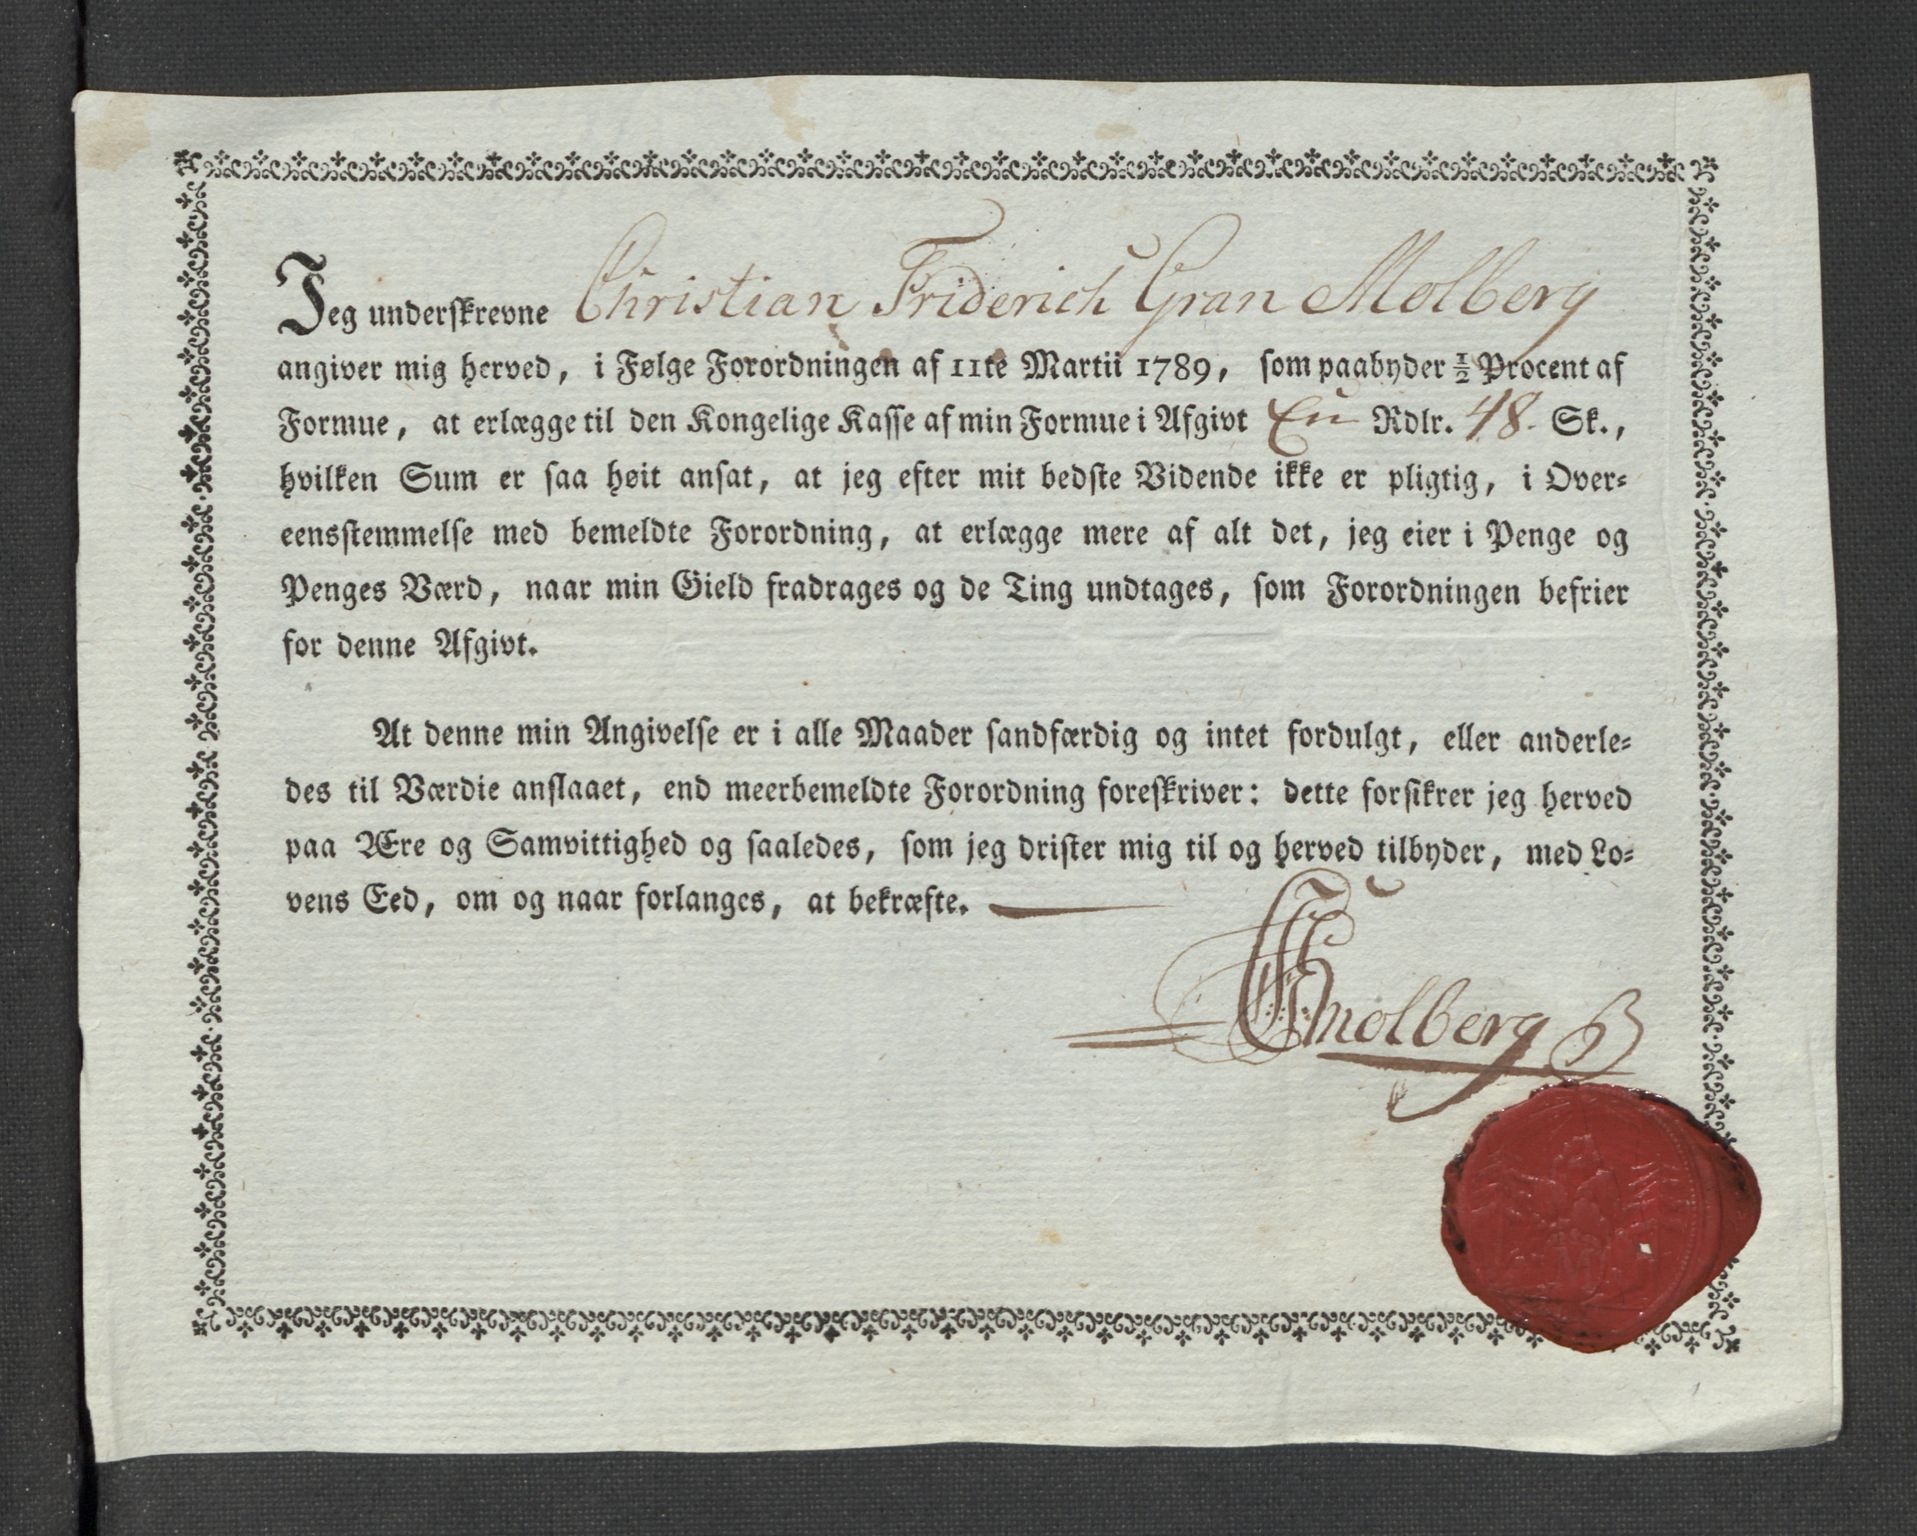 Jeg underskrevne Christian Friderich Gran Molberg
angiver mig herved, i Følge Forordningen af 11te Martii 1789, som paabyder ½ Procent af
Formue, at erlægge til den Kongelige Kasse af min Formue i Afgivt En Rdlr. 48. Sk.,
hvilken Sum er saa høit ansat, at jeg efter mit bedste Vidende ikke er pligtig, i Over-
eensstemmelse med bemeldte Forordning, at erlægge mere af alt det, jeg eier i Penge og
Penges Værd, naar min Gield fradrages og de Ting undtages, som Forordningen befrier
for denne Afgivt.
At denne min Angivelse er i alle Maader sandfærdig og intet fordulgt, eller anderle-
des til Værdie anslaaet, end meerbemeldte Forordning foreskriver: dette forsikrer jeg herved
paa Ære og Samvittighed og saaledes, som jeg drister mig til og herved tilbyder, med Lo-
vens Eed, om og naar forlanges, at bekræfte.
CFGMolberg
M